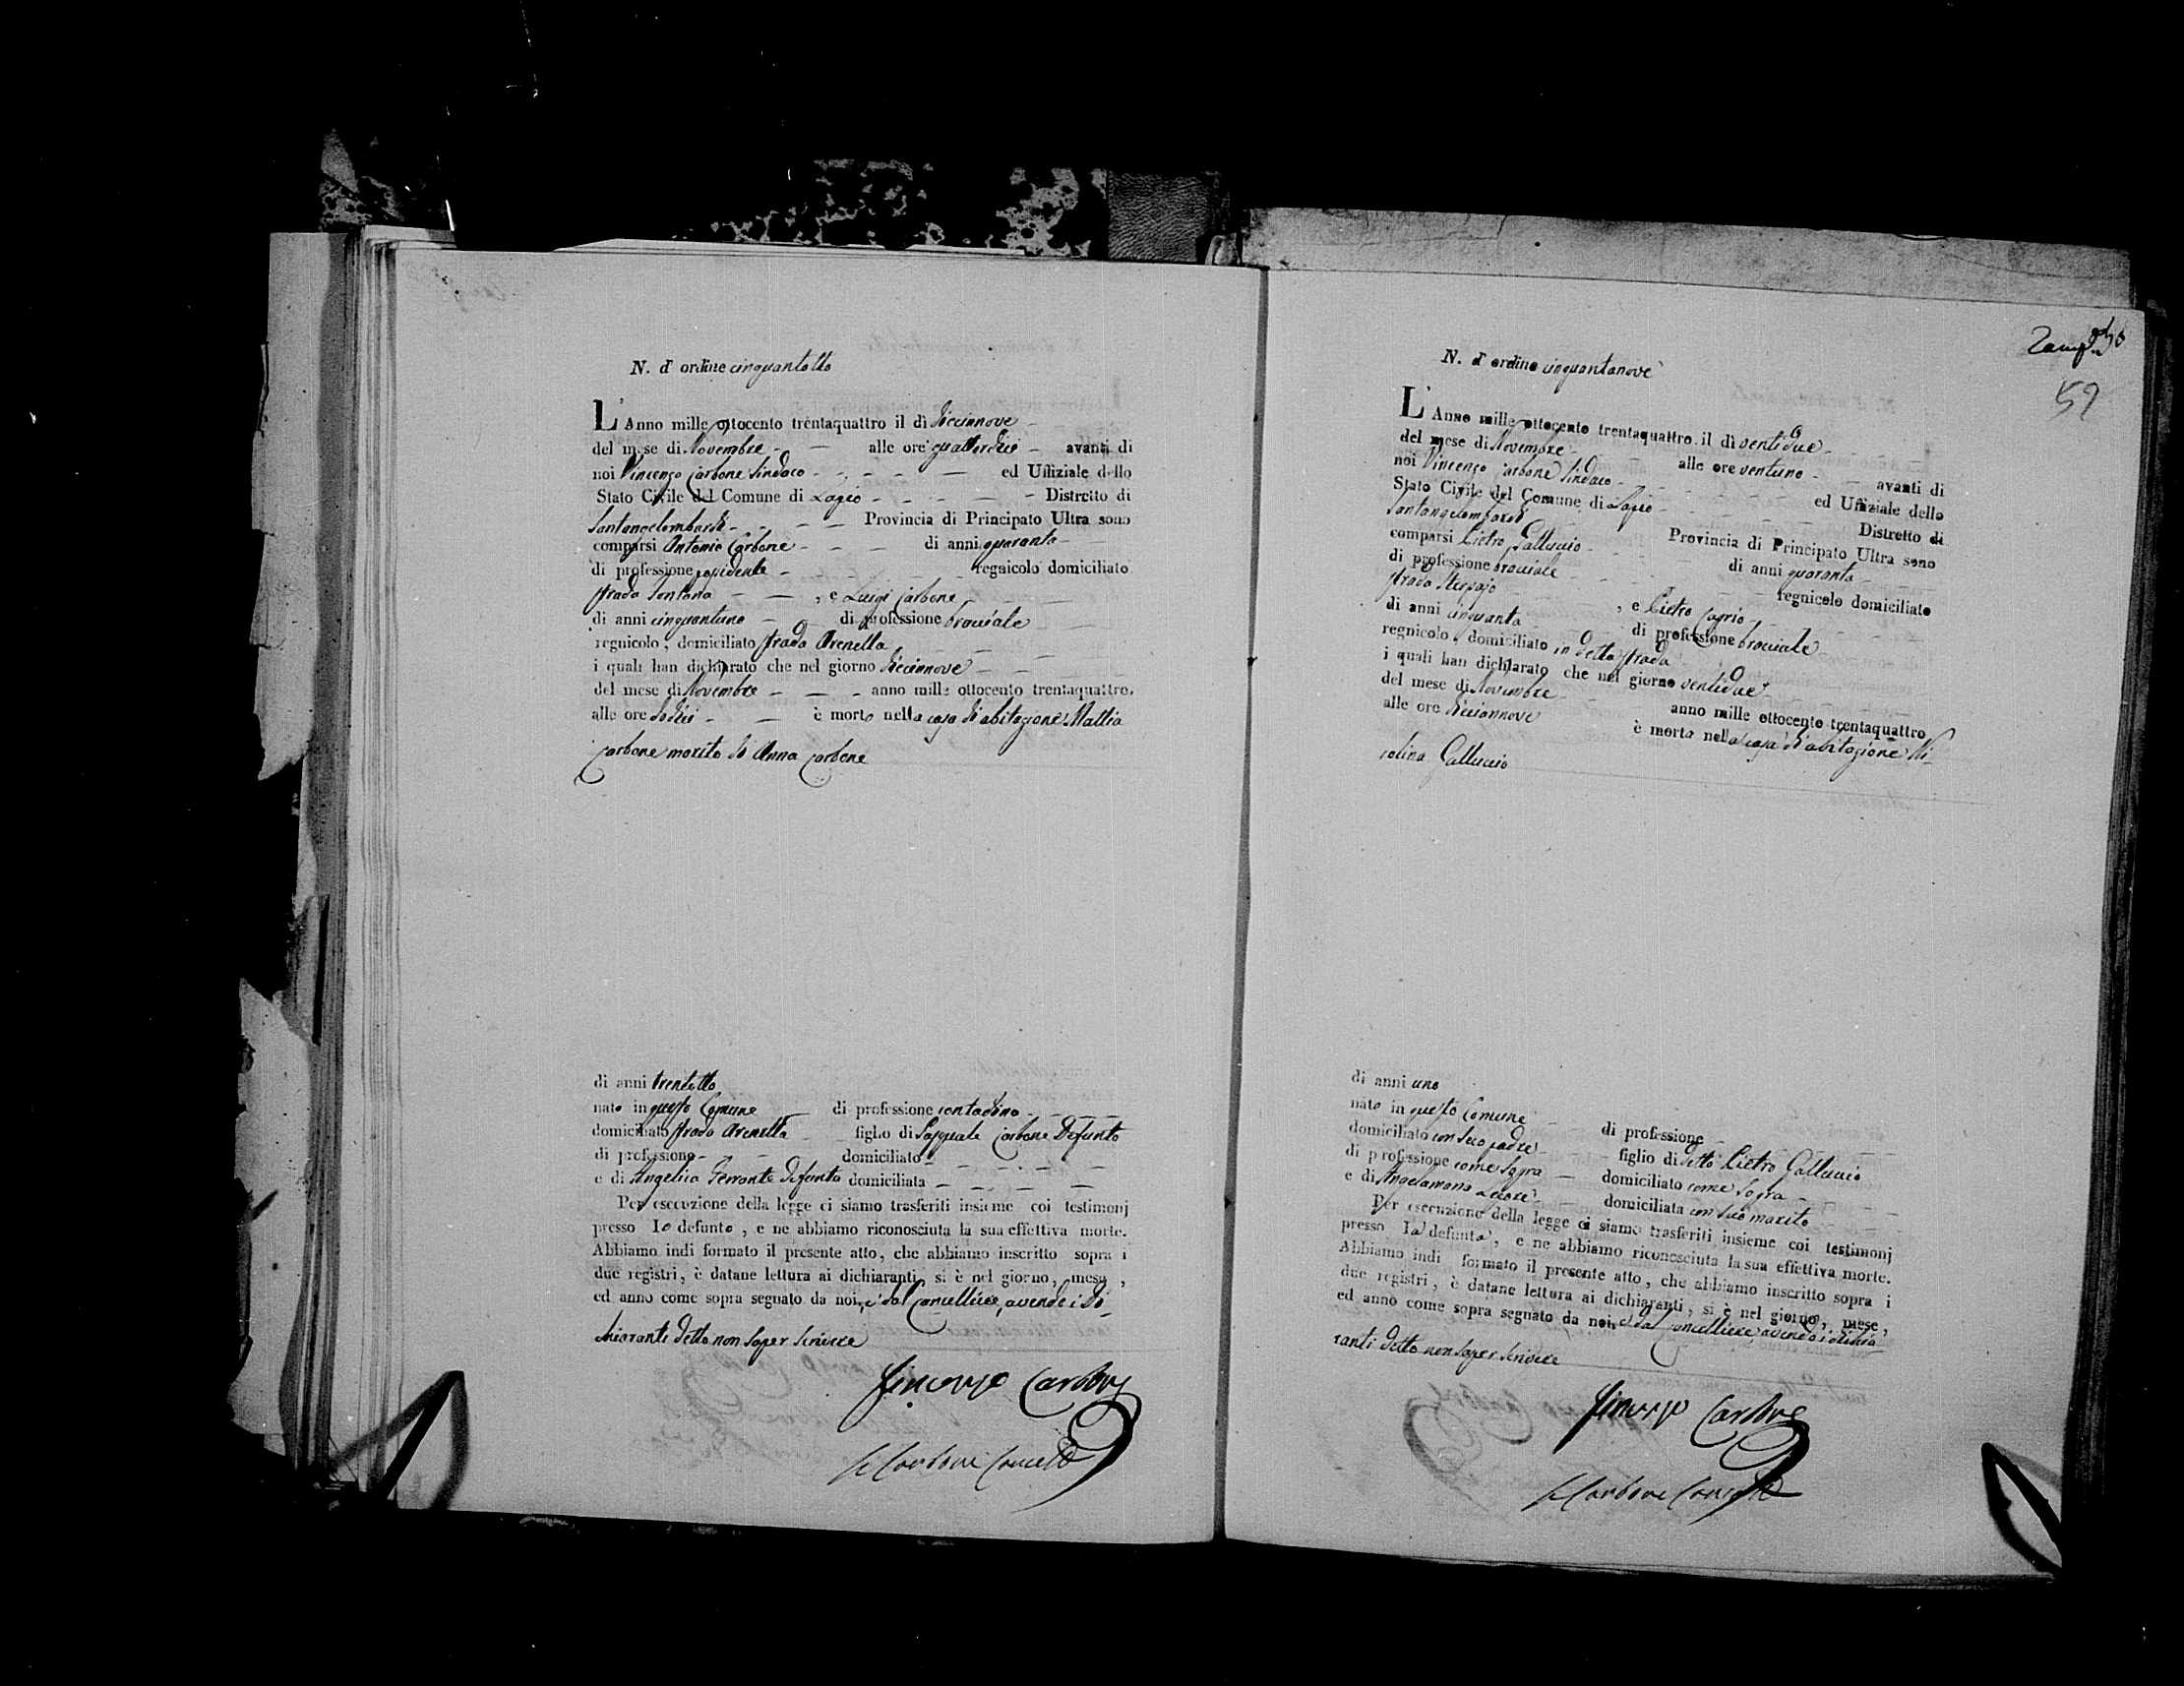 N. d'ordine cinquantotto
L'Anno mille ottocento trentaquattro il dì diciannove
del mese di Novembre alle ore quattordici avanti di
noi Vincenzo Carbone Sindaco ed Uffiziale dello
Stato Civile del Comune di Lapio Distretto di
Santangelombardi Provincia di Principato Ultra sono
comparsi Antonio Carbone di anni quaranta
di professione possidente regnicolo domiciliato
strada Fontana , e Luigi Carbone
di anni cinquantuno di professione bracciale
regnicolo, domiciliato strada Arenella
i quali han dichiarato che nel giorno diciannove
del mese di Novembre anno mille ottocento trentaquattro,
alle ore dodici è morto nella casa di abitazione Mattia
Carbone marito di Anna Carbone
di anni trentotto
nato in questo Comune di professione contadino
domiciliato strada Arenella figlio di Pasquale Carbone Defunto
di professione domiciliato
e di Angelica Ferrante defunta domiciliata
Per esecuzione della legge ci siamo trasferiti insieme coi testimonj
presso lo defunto, e ne abbiamo riconosciuta la sua effettiva morte.
Abbiamo indi formato il presente atto, che abbiamo inscritto sopra i
due registri, è datane lettura ai dichiaranti, si è nel giorno, mese,
ed anno come sopra segnato da noi, e dal Cancelliere, avendo i di-
chiaranti detto non saper scrivere
Vincenzo Carbone
Carbone Cancell
59
N. d'ordine cinquantanove
L'Anno mille ottocento trentaquattro il dì ventidue
del mese di Novembre alle ore ventuno avanti di
noi Vincenzo Carbone Sindaco ed Uffiziale dello
Stato Civile del Comune di Lapio Distretto di
Santangelombardi Provincia di Principato Ultra sono
comparsi Pietro Galluccio di anni quaranta
di professione bracciale regnicolo domiciliato
strada , e Pietro Caprio
di anni cinquanta di professione bracciale
regnicolo, domiciliato in detta strada
i quali han dichiarato che nel giorno ventidue
del mese di Novembre anno mille ottocento trentaquattro
alle ore diciannove è morta nella casa di abitazione Ni-
colina Galluccio
di anni uno
nato in questo Comune di professione
domiciliato con suo padre figlio di detto Pietro Galluccio
di professione come sopra domiciliato come sopra
e di Angelamaria domiciliata con suo marito
Per esecuzione della legge ci siamo trasferiti insieme coi testimonj
presso la defunta, e ne abbiamo riconosciuta la sua effettiva morte.
Abbiamo indi formato il presente atto, che abbiamo inscritto sopra i
due registri, è datane lettura ai dichiaranti, si è nel giorno, mese,
ed anno come sopra segnato da noi, e dal Cancelliere avendo i dichia
ranti detto non saper scrivere
Vincenzo Carbone
Carbone Cancell